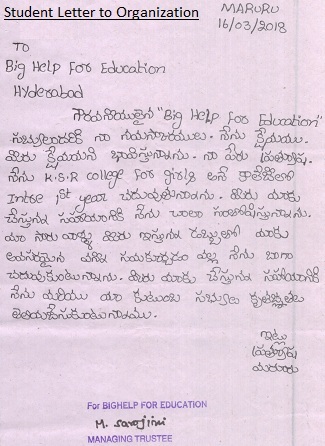 Student Letter to Organization
MARURU
16/03/2018
TO
Big Help For Education
Hyderabad
గౌరవనీయులైన "Big Help For Education"
సభ్యులందరికి నా నమస్కారములు. నేను క్షేమము.
మీరు క్షేమమని భావిస్తున్నాను. నా పేరు
నేను K.S.R college for girls అనే కాలేజీలో
Inter 1st year చదువుతున్నాను. మీరు మాకు
చేస్తున్న సహాయానికి నేను చాలా సంతోషిస్తున్నాను.
మా సారు వాళ్ళు మీరు ఇస్తున్న డబ్బులతో మాకు
అవసరమైన సమకూర్చడం వల్ల నేను బాగా
చదువుకుంటున్నాను. మీరు మాకు చేస్తున్న సహాయానికి
నేను మరియు మా కుటుంబ సభ్యులు కృతజ్ఞతలు
తెలియజేసుకుంటున్నాము.
ఇట్లు
మరూరు
For BIGHELP FOR EDUCATION
M. Sarojini
MANAGING TRUSTEE